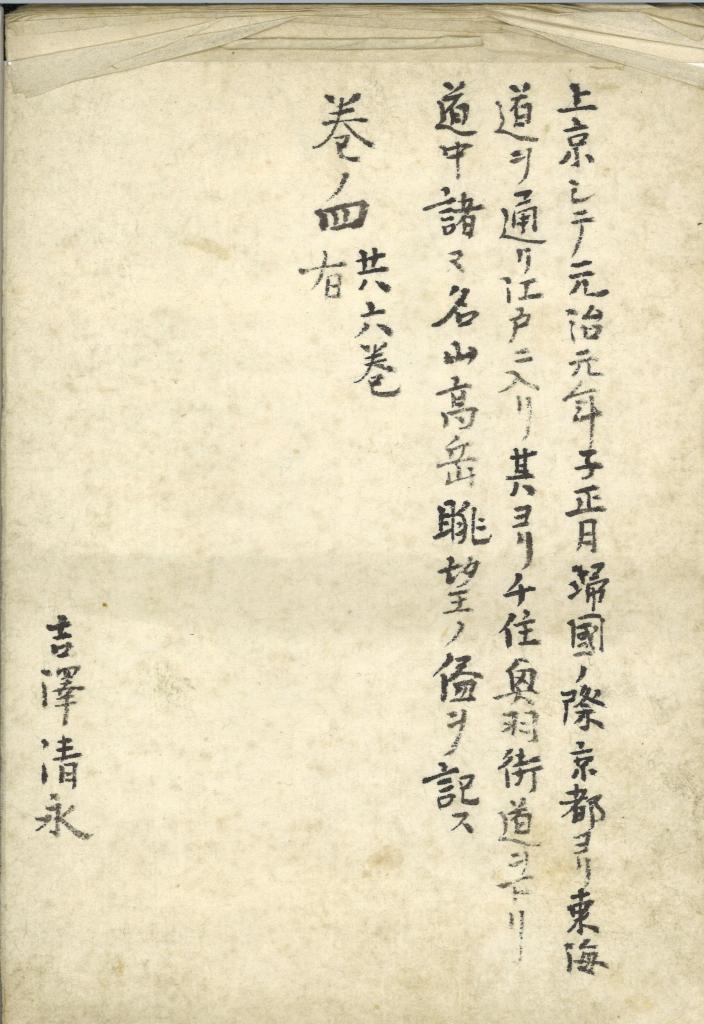 上京シテ元治元年子正月歸國ノ際京都ヨリ東海
道ヲ通リ江戸ニ入リ其ヨリ千住奥羽街道ヲ下リ
道中諸々名山高岳眺望ノ儘ヲ記ス
巻ノ四
共六巻
有
吉澤清永